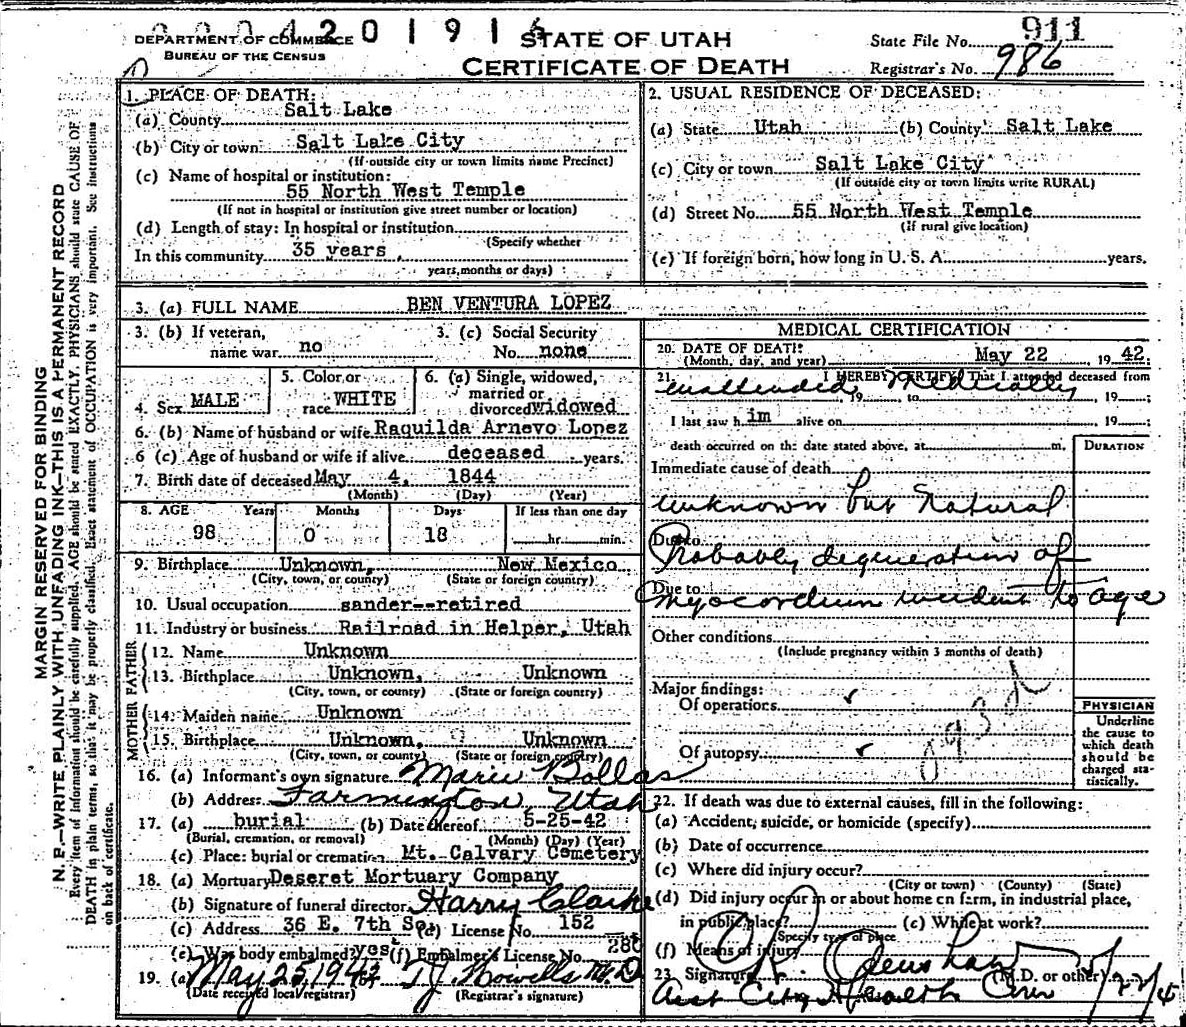 DEPARTMENT OF COMMERCE
BUREAU OF THE CENSUS
STATE OF UTAH
CERTIFICATE OF DEATH
State File No. 911
Registrar's No. 986
MARGIN RESERVED FOR BINDING
N. B.—WRITE PLAINLY WITH UNFADING INK—THIS IS A PERMANENT RECORD
Every item of information should be carefully supplied. AGE should be stated EXACTLY. PHYSICIANS should state CAUSE OF
DEATH in plain terms, so that it may be properly classified. Exact statement of OCCUPATION is very important. See instructions
on back of certificate.
1. PLACE OF DEATH:
(a) County Salt Lake
(b) City or town Salt Lake City
(If outside city or town limits name Precinct)
(c) Name of hospital or institution:
55 North West Temple
(If not in hospital or institution give street number or location)
(d) Length of stay: In hospital or institution
(Specify whether
In this community 35 years
years, months or days)
2. USUAL RESIDENCE OF DECEASED:
(a) State Utah (b) County Salt Lake
(c) City or town Salt Lake City
(If outside city or town limits write RURAL)
(d) Street No. 55 North West Temple
(If rural give location)
(e) If foreign born, how long in U. S. A. years.
3. (a) FULL NAME BEN VENTURA LOPEZ
3. (b) If veteran,
name war no
3. (c) Social Security
No. none
4. Sex MALE
5. Color or
race WHITE
6. (a) Single, widowed,
married or
divorced widowed
6. (b) Name of husband or wife Raquilda Arnevo Lopez
6 (c) Age of husband or wife if alive deceased years.
7. Birth date of deceased May 4, 1844
(Month) (Day) (Year)
8. AGE Years Months Days If less than one day
98 0 18 hr. min.
9. Birthplace Unknown, New Mexico
(City, town, or county) (State or foreign country)
10. Usual occupation sander--retired
11. Industry or business Railroad in Helper, Utah
FATHER
12. Name Unknown
13. Birthplace Unknown, Unknown
(City, town, or county) (State or foreign country)
MOTHER
14. Maiden name Unknown
15. Birthplace Unknown, Unknown
(City, town, or county) (State or foreign country)
16. (a) Informant's own signature Marie Bollas
(b) Address Farmington, Utah
17. (a) burial (b) Date thereof 5-25-42
(Burial, cremation, or removal) (Month) (Day) (Year)
(c) Place: burial or cremation Mt. Calvary Cemetery
18. (a) Mortuary Deseret Mortuary Company
(b) Signature of funeral director Harry Clarke
(c) Address 36 E. 7th So. (d) License No. 152
(e) Was body embalmed? yes (f) Embalmer's License No. 286
19. (a) May 25, 1942 (b) T J Howells M. D
(Date received local registrar) (Registrar's signature)
MEDICAL CERTIFICATION
20. DATE OF DEATH:
(Month, day, and year) May 22, 1942
21. I HEREBY CERTIFY That I attended deceased from
unattended Medically 19 to 19 ;
I last saw h im alive on 19 ;
death occurred on the date stated above, at m.
DURATION
Immediate cause of death
unknown but Natural
Due to
Probably degeneration of
Due to
myocardium incident to age
Other conditions
(Include pregnancy within 3 months of death)
Major findings:
Of operations
Of autopsy
PHYSICIAN
Underline
the cause to
which death
should be
charged sta-
tistically.
22. If death was due to external causes, fill in the following:
(a) Accident, suicide, or homicide (specify)
(b) Date of occurrence
(c) Where did injury occur?
(City or town) (County) (State)
(d) Did injury occur in or about home on farm, in industrial place,
in public place? (e) While at work?
(Specify type of place
(f) Means of injury
23. Signature (M.D. or other)
City Health